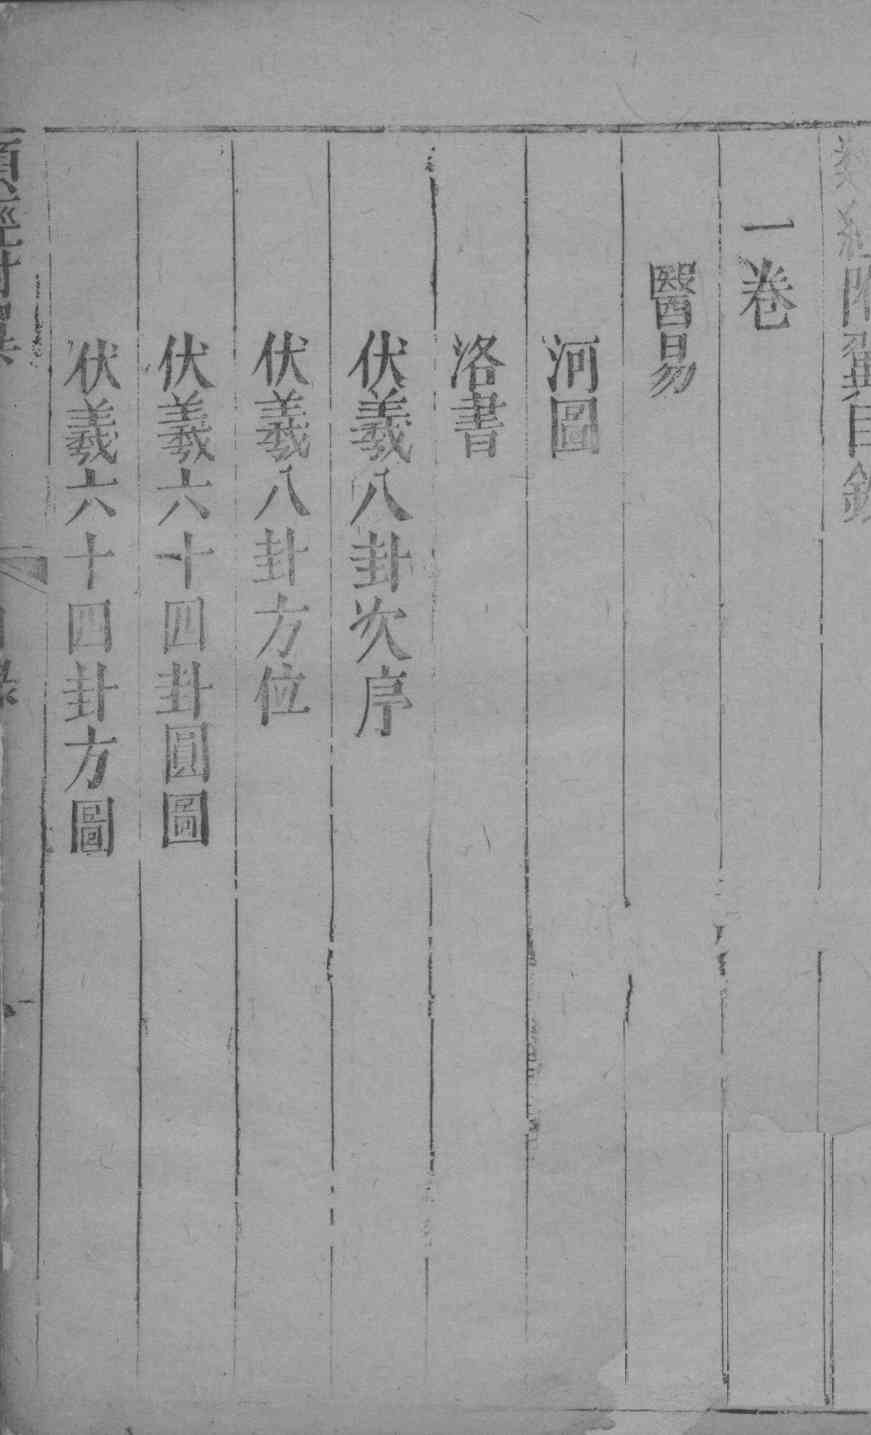 類經附翼目錄
一卷
醫易
河圖
洛書
伏羲八卦次序
伏羲八卦方位
伏羲六十四卦圓圖
伏羲六十四卦方圖
類經附翼 目錄